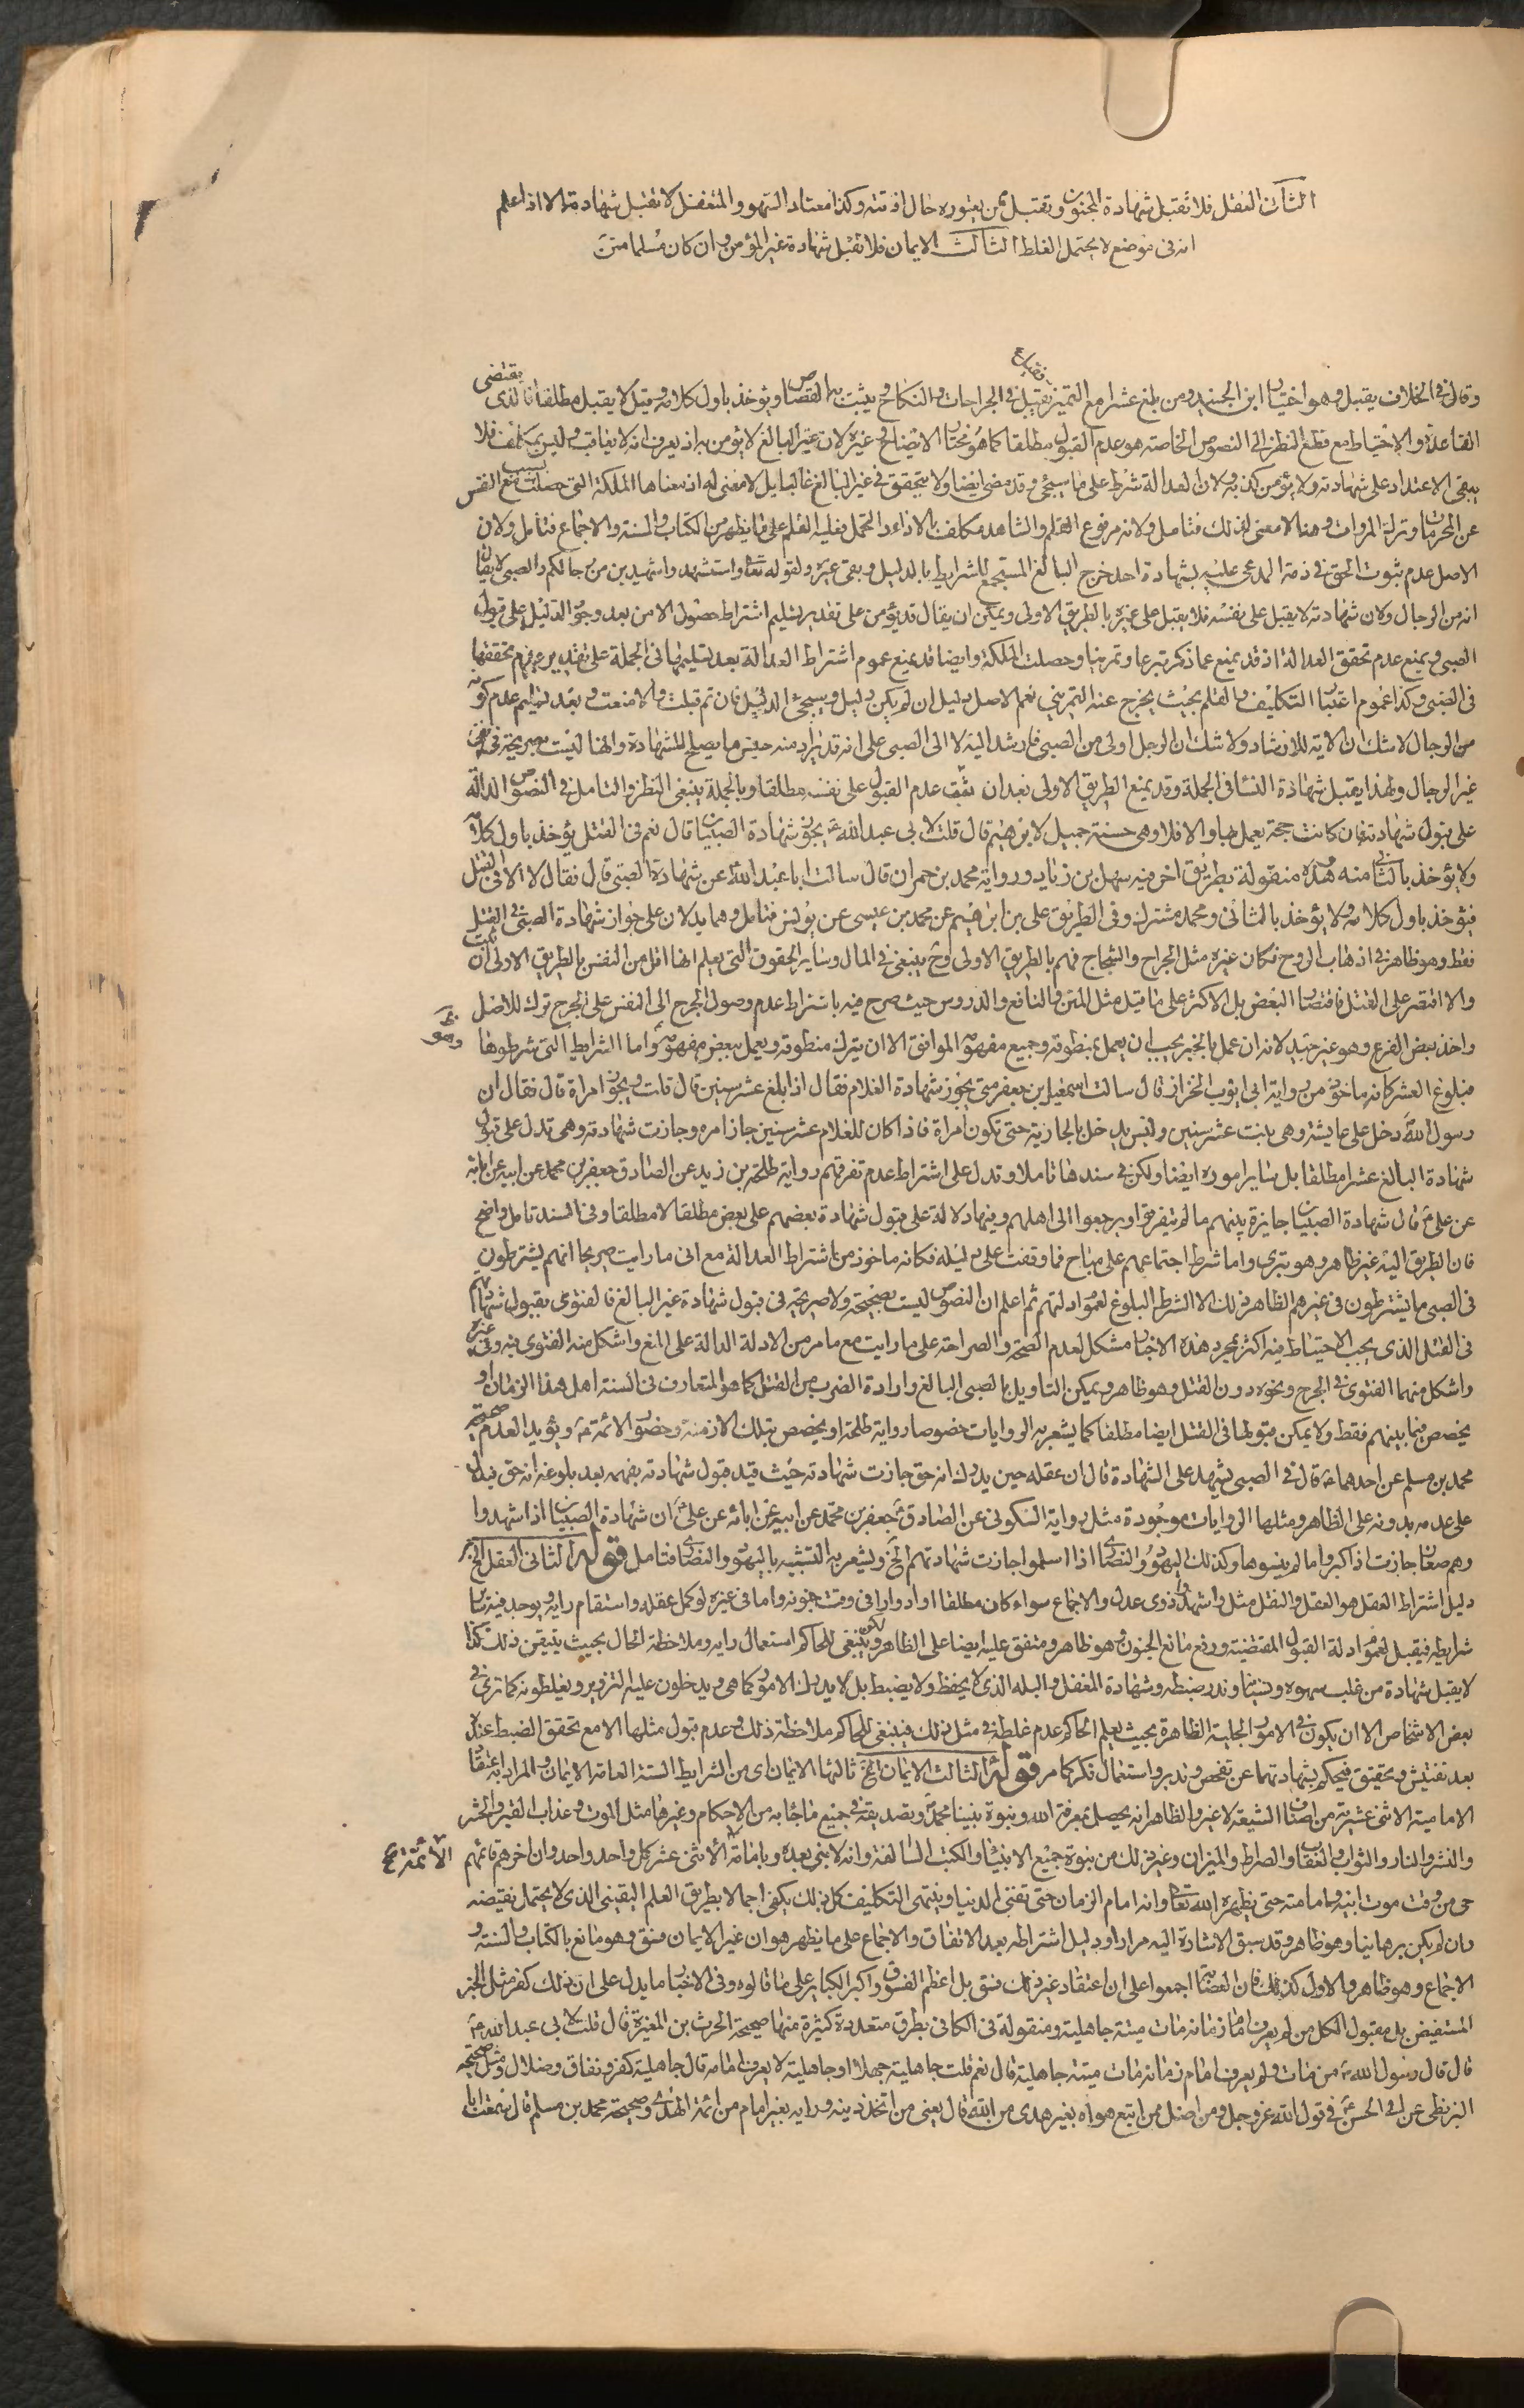 الثانى العقل فلا تقبل شهادة المجنون وتقبل ممن يعتوره حال افاقته وكذا معتاد السهو والمتغفل لا تقبل شهادته الا اذا علم
انه فى موضع لا يحتمل الغلط الثالث الايمان فلا تقبل شهادة غير المؤمن وان كان مسلما متن
وقال فى الخلاف يقبل وهو اختيار ابن الجنيد ومن بلغ عشرا مع التميز تقبل فى الجراحات والنكاح يثبت به القصاص ويؤخذ باول كلامه وقيل لا يقبل مطلقا الذى يقتضى
القاعدة والاحتياط مع قطع النظر الى النصوص الخاصة هو عدم القبول مطلقا كما هو مختار الايضاح وغيره لان غير البالغ لا يؤمن به اذ يعرف انه لا يعاقب وليس بمكلف فلا
يبقى الاعتداد على شهادته ولا يؤمن كذبه ولان العدالة شرط على ما سيجئ وقد مضى ايضا ولا يتحقق فى غير البالغ غالبا بل لا معنى له اذ معناها الملكة التى حصلت بسبب منع النفس
عن المحرمات وترك المروات وهنا لا معنى لذلك فتامل ولانه مرفوع القلم والشاهد مكلف بالاداء والتحمل فعليه القلم على ما يظهر من الكتاب والسنة والاجماع فتامل ولان
الاصل عدم ثبوت الحق فى ذمة المدعى عليه بشهادة احد خرج البالغ المستجمع للشرايط بالدليل وبقى غيره ولقوله تعا واستشهدوا شهيدين من رجالكم والصبى لا يقال
انه من الرجال ولان شهادته لا يقبل على نفسه فلا يقبل على غيره بالطريق الاولى ويمكن ان يقال قد يؤمن على تقدير تسليم اشتراط حصول الامن بعد وجود الدليل على قبول
الصبى ويمنع عدم تحقق العدالة اذ قد يمنع عما ذكر تبرعا وتمرينا وحصلت الملكة وايضا قد يمنع عموم اشتراط العدالة بعد تسليمها فى الجملة على تقدير عدم تحققها
فى الصبى وكذا عموم اعتبار التكليف والقلم بحيث يخرج عنه التمرينى نعم الاصل دليل ان لم يكن دليل وسيجئ الدليل فان تم قبلت والا منعت وبعد تسليم عدم كونه
من الرجال لا شك ان الاية للارشاد ولا شك ان الرجل اولى من الصبى فارشد اليه لا الى الصبى على انه قد يراد منه جنس ما يصلح للشهادة وانها ليست بصريحة فى نفى
غير الرجال ولهذا يقبل شهادة النسا فى الجملة وقد يمنع الطريق الاولى بعد ان ثبت عدم القبول على نفسه مطلقا وبالجملة ينبغى النظر والتامل فى النصوص الدالة
على قبول شهادته فان كانت حجة يعمل بها والا فلا وهى حسنة جميل لابرهيم قال قلت لابى عبد الله ع يجوز شهادة الصبيان قال نعم فى القتل يؤخذ باول كلامه
ولا يؤخذ بالثانى منه وهذه منقولة بطريق اخر فيه سهل بن زياد ورواية محمد بن حمران قال سالت ابا عبد الله ع عن شهادة الصبى قال فقال لا الا فى القتل
فيؤخذ باول كلامه ولا يؤخذ بالثانى ومحمد مشترك وفى الطريق على بن ابرهيم عن محمد بن عيسى عن يونس فتامل وهما يدلان على جواز شهادة الصبى فى القتل
فقط وهو ظاهر فى اذهاب الروح فكان غيره مثل الجراح والشجاج فهم بالطريق الاولى وح ينبغى فى المال وساير الحقوق التى يعلم انها اقل من النفس بالطريق الاولى ان ثبت
والا اقتصر على القتل فاقتصار البعض بل الاكثر على ما قيل مثل المتن والنافع والدروس حيث صرح فيه باشتراط عدم وصول الجرح الى النفس على الجرح ترك للاصل
واخذ ببعض الفرع وهو غير جيد لانه ان عمل بالخبر يجب ان يعمل بمنطوقه وجميع مفهومه الموافق الا ان يترك منطوقه ويعمل ببعض مفهومه واما الشرايط التى شرطوها
فبلوغ العشر كانه ماخوذ من رواية ابى ايوب الخزاز قال سالت اسمعيل بن جعفر متى يجوز شهادة الغلام فقال اذا بلغ عشر سنين قال قلت ويجوز امراة قال فقال ان
رسول الله ص دخل على عايشة وهى بنت عشر سنين وليس يدخل بالجارية حتى تكون امراة فاذا كان للغلام عشر سنين جاز امره وجازت شهادته وهى تدل على قبول
شهادة البالغ عشرا مطلقا بل ساير اموره ايضا ولكن فى سندها تاملا وتدل على اشتراط عدم تفرقهم رواية طلحة بن زيد عن الصادق جعفر بن محمد عن ابيه عن ابائه
عن على ع قال شهادة الصبيان جايزة بينهم ما لم يتفرقوا او يرجعوا الى اهلهم وفيها دلالة على قبول شهادة بعضهم على بعض مطلقا لا مطلقا وفى السند تامل واضح
فان الطريق اليه غير ظاهر وهو بترى واما شرط اجتماعهم على مباح فما وقفت على دليله فكانه ماخوذ من اشتراط العدالة مع انى ما رايت صريحا انهم يشترطون
فى الصبى ما يشترطون فى غيرهم الظاهر ذلك الا الشرط البلوغ لعموم ادلتهم ثم اعلم ان النصوص ليست بصحيحة ولا صريحة فى قبول شهادة غير البالغ فالفتوى بقبول شهادتهم
فى القتل الذى يجب الاحتياط فيه اكثر بمجرد هذه الاخبار مشكل لعدم الصحة والصراحة على ما رايت مع ما مر من الادلة الدالة على المنع واشكل منه الفتوى فيه وفى غيره
واشكل منهما الفتوى فى الجرح ونحوه دون القتل وهو ظاهر ويمكن التاويل بالصبى البالغ وارادة الضرب من القتل كما هو المتعارف فى السنة اهل هذا الزمان او
يخصص فيما بينهم فقط ولا يمكن قبولها فى القتل ايضا مطلقا كما يشعر به الروايات خصوصا رواية طلحة او يخصص بتلك الازمنة وحضور الائمة ع ويؤيد العدم صحيحة
محمد بن مسلم عن احدهما ع قال فى الصبى يشهد على الشهادة قال ان عقله حين يدرك انه حق جازت شهادته حيث قيد قبول شهادته بفهمه بعد بلوغه انه حق فيدل
على عدمه بدونه على الظاهر ومثلها الروايات موجودة مثل رواية السكونى عن الصادق ع جعفر بن محمد عن ابيه عن ابائه عن على ع ان شهادة الصبيان اذا شهدوا
وهم صغار جازت اذا كبروا ما لم ينسوها وكذلك اليهود والنصارى اذا اسلموا جازت شهادتهم الخ ويشعر به التشبيه باليهود والنصارى فتامل قوله الثانى العقل الخ
دليل اشتراط العقل هو العقل والنقل مثل واشهدوا ذوى عدل والاجماع سواء كان مطلقا او ادوارا فى وقت جنونه واما فى غيره لو كمل عقله واستقام رايه ويوجد فيه ساير
شرايطه فيقبل لعموم ادلة القبول المقتضية ورفع مانع الجنون وهو ظاهر ومتفق عليه ايضا على الظاهر ولكن ينبغى للحاكم استعمال رايه وملاحظة الحال بحيث يتيقن ذلك كذا
لا يقبل شهادة من غلب سهوه ونسيانه وندر ضبطه وشهادة المغفل والبله الذى لا يحفظ ولا يضبط بل لا يدرك الامور كما هى ويدخلون عليه التزوير ويغلطونه كما ترى فى
بعض الاشخاص الا ان يكون فى الامور الجلية الظاهرة بحيث يعلم الحاكم عدم غلطه فى مثل ذلك فينبغى للحاكم ملاحظة ذلك وعدم قبول مثلها الا مع تحقق الضبط عنده
بعد تفتيش وتحقيق فيحكم بشهادتهما عن تفحص وتدبر واستعمال فكر كما مر قوله الثالث الايمان الخ ثالثها الايمان اى من الشرايط الستة العامة الايمان والمراد به اعتقاد
الامامية الاثنى عشرية من اصناف الشيعة لا غير والظاهر انه يحصل بمعرفة الله ونبوة نبينا محمد ص وتصديقه فى جميع ما جاء به من الاحكام وغيرها مثل الموت وعذاب القبر والحشر
والنشر والنار والثواب والعقاب والصراط والميزان وغير ذلك من نبوة جميع الانبياء والكتب السالفة وانه لا نبى بعده وبامامة الائمة ع الاثنى عشر كل واحد واحد وان اخرهم قائمهم
حى من وقت موت ابيه وامامته حتى يظهره الله تعا وانه امام الزمان حتى تفنى الدنيا وينتهى التكليف كل ذلك يكفى اجمالا بطريق العلم اليقينى الذى لا يحتمل نقيضه
وان لم يكن برهانيا وهو ظاهر وقد سبق الاشارة اليه مرارا ودليل اشتراطه بعد الاتفاق والاجماع على ما يظهر هو ان غير الايمان فسق وهو مانع بالكتاب والسنة و
الاجماع وهو ظاهر والاول كذلك فان اصحابنا اجمعوا على ان اعتقاد غير ذلك فسق بل اعظم الفسوق واكبر الكباير على ما قالوه وفى الاخبار ما يدل على ان ذلك كفر مثل الخبر
المستفيض بل مقبول الكل من لم يعرف امام زمانه مات ميتة جاهلية ومنقولة فى الكافى بطرق متعددة كثيرة منها صحيحة الحرث بن المغيرة قال قلت لابى عبد الله ع
قال قال رسول الله ص من مات ولم يعرف امام زمانه مات ميتة جاهلية قال نعم قلت جاهلية جهلا او جاهلية لا يعرف امامه قال جاهلية كفر ونفاق وضلال ومثل صحيحة
البزنطى عن ابى الحسن ع فى قول الله عز وجل ومن اضل ممن اتبع هواه بغير هدى من الله قال يعنى من اتخذ دينه ورايه بغير امام من ائمة الهدى وصحيحة محمد بن مسلم قال سمعت ابا